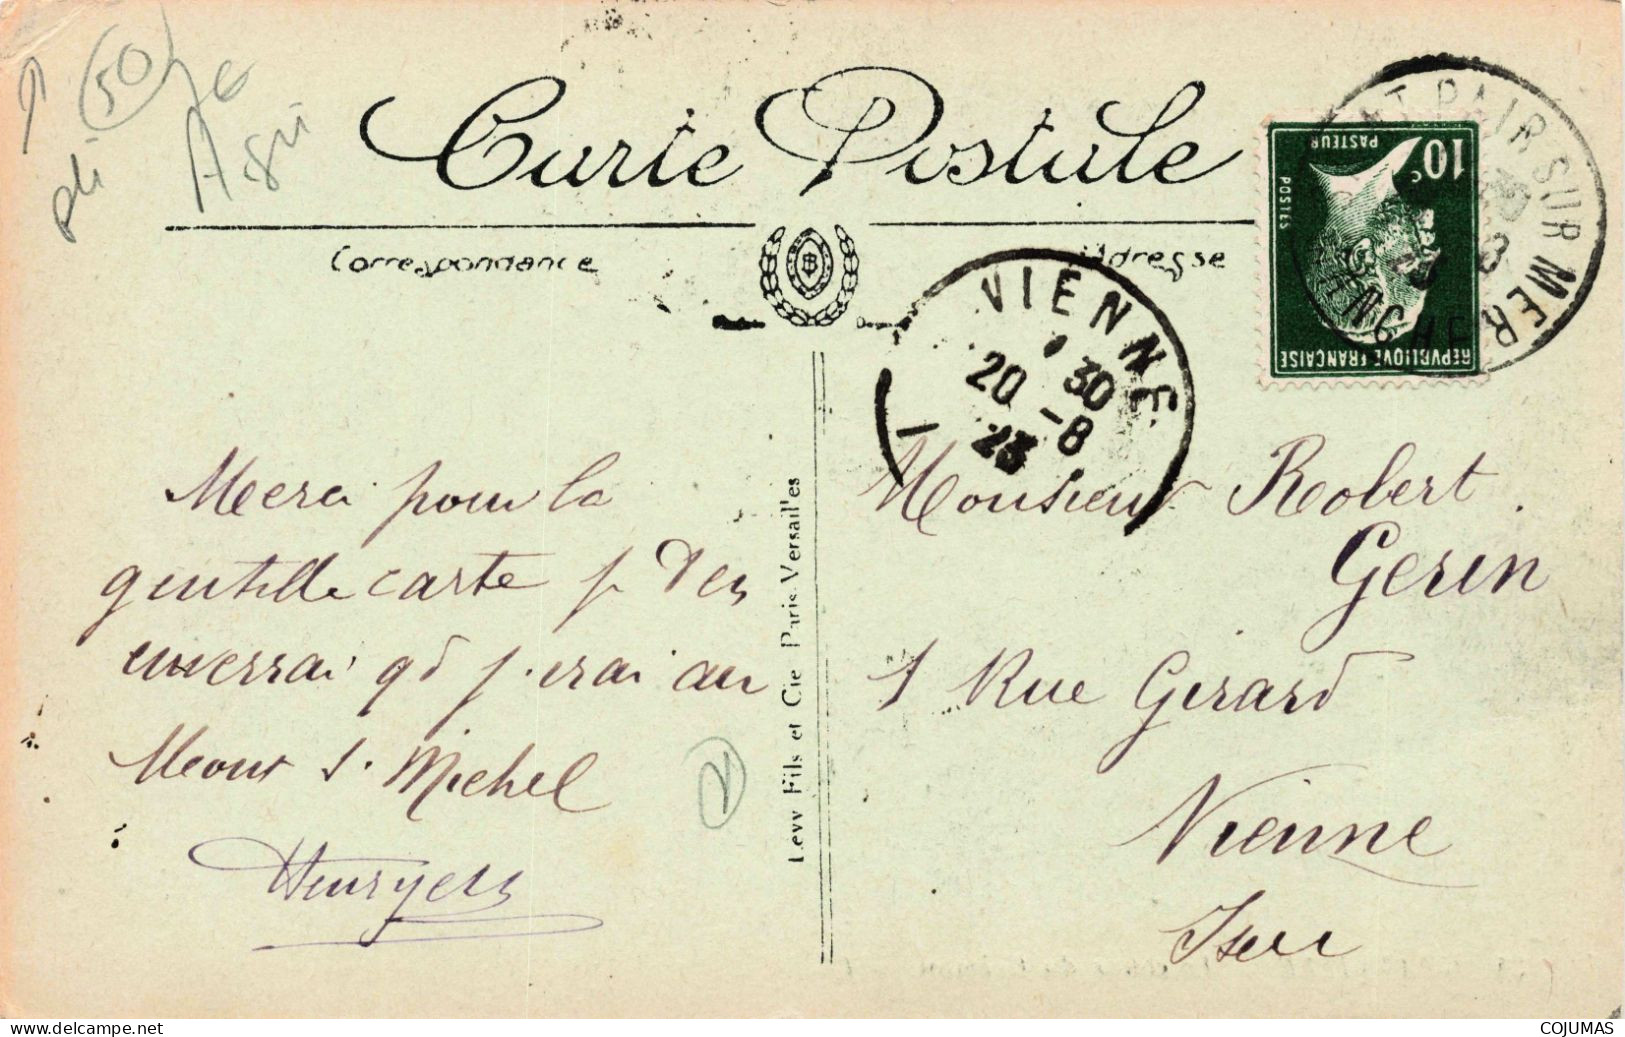 50
Carte Postale
Correspondance
Adresse
ST PAIR SUR MER
MANCHE
10c
PASTEUR
POSTES
REPVBLIQVE FRANÇAISE
VIENNE
20 -8
23
Merci pour la
gentille carte j' t'en
enverrai qd j'irai au
Mont St. Michel
Monsieur Robert
Gerin
1 Rue Girard
Vienne
Isère
Levy Fils et Cie Paris-Versailles
www.delcampe.net
COJUMAS